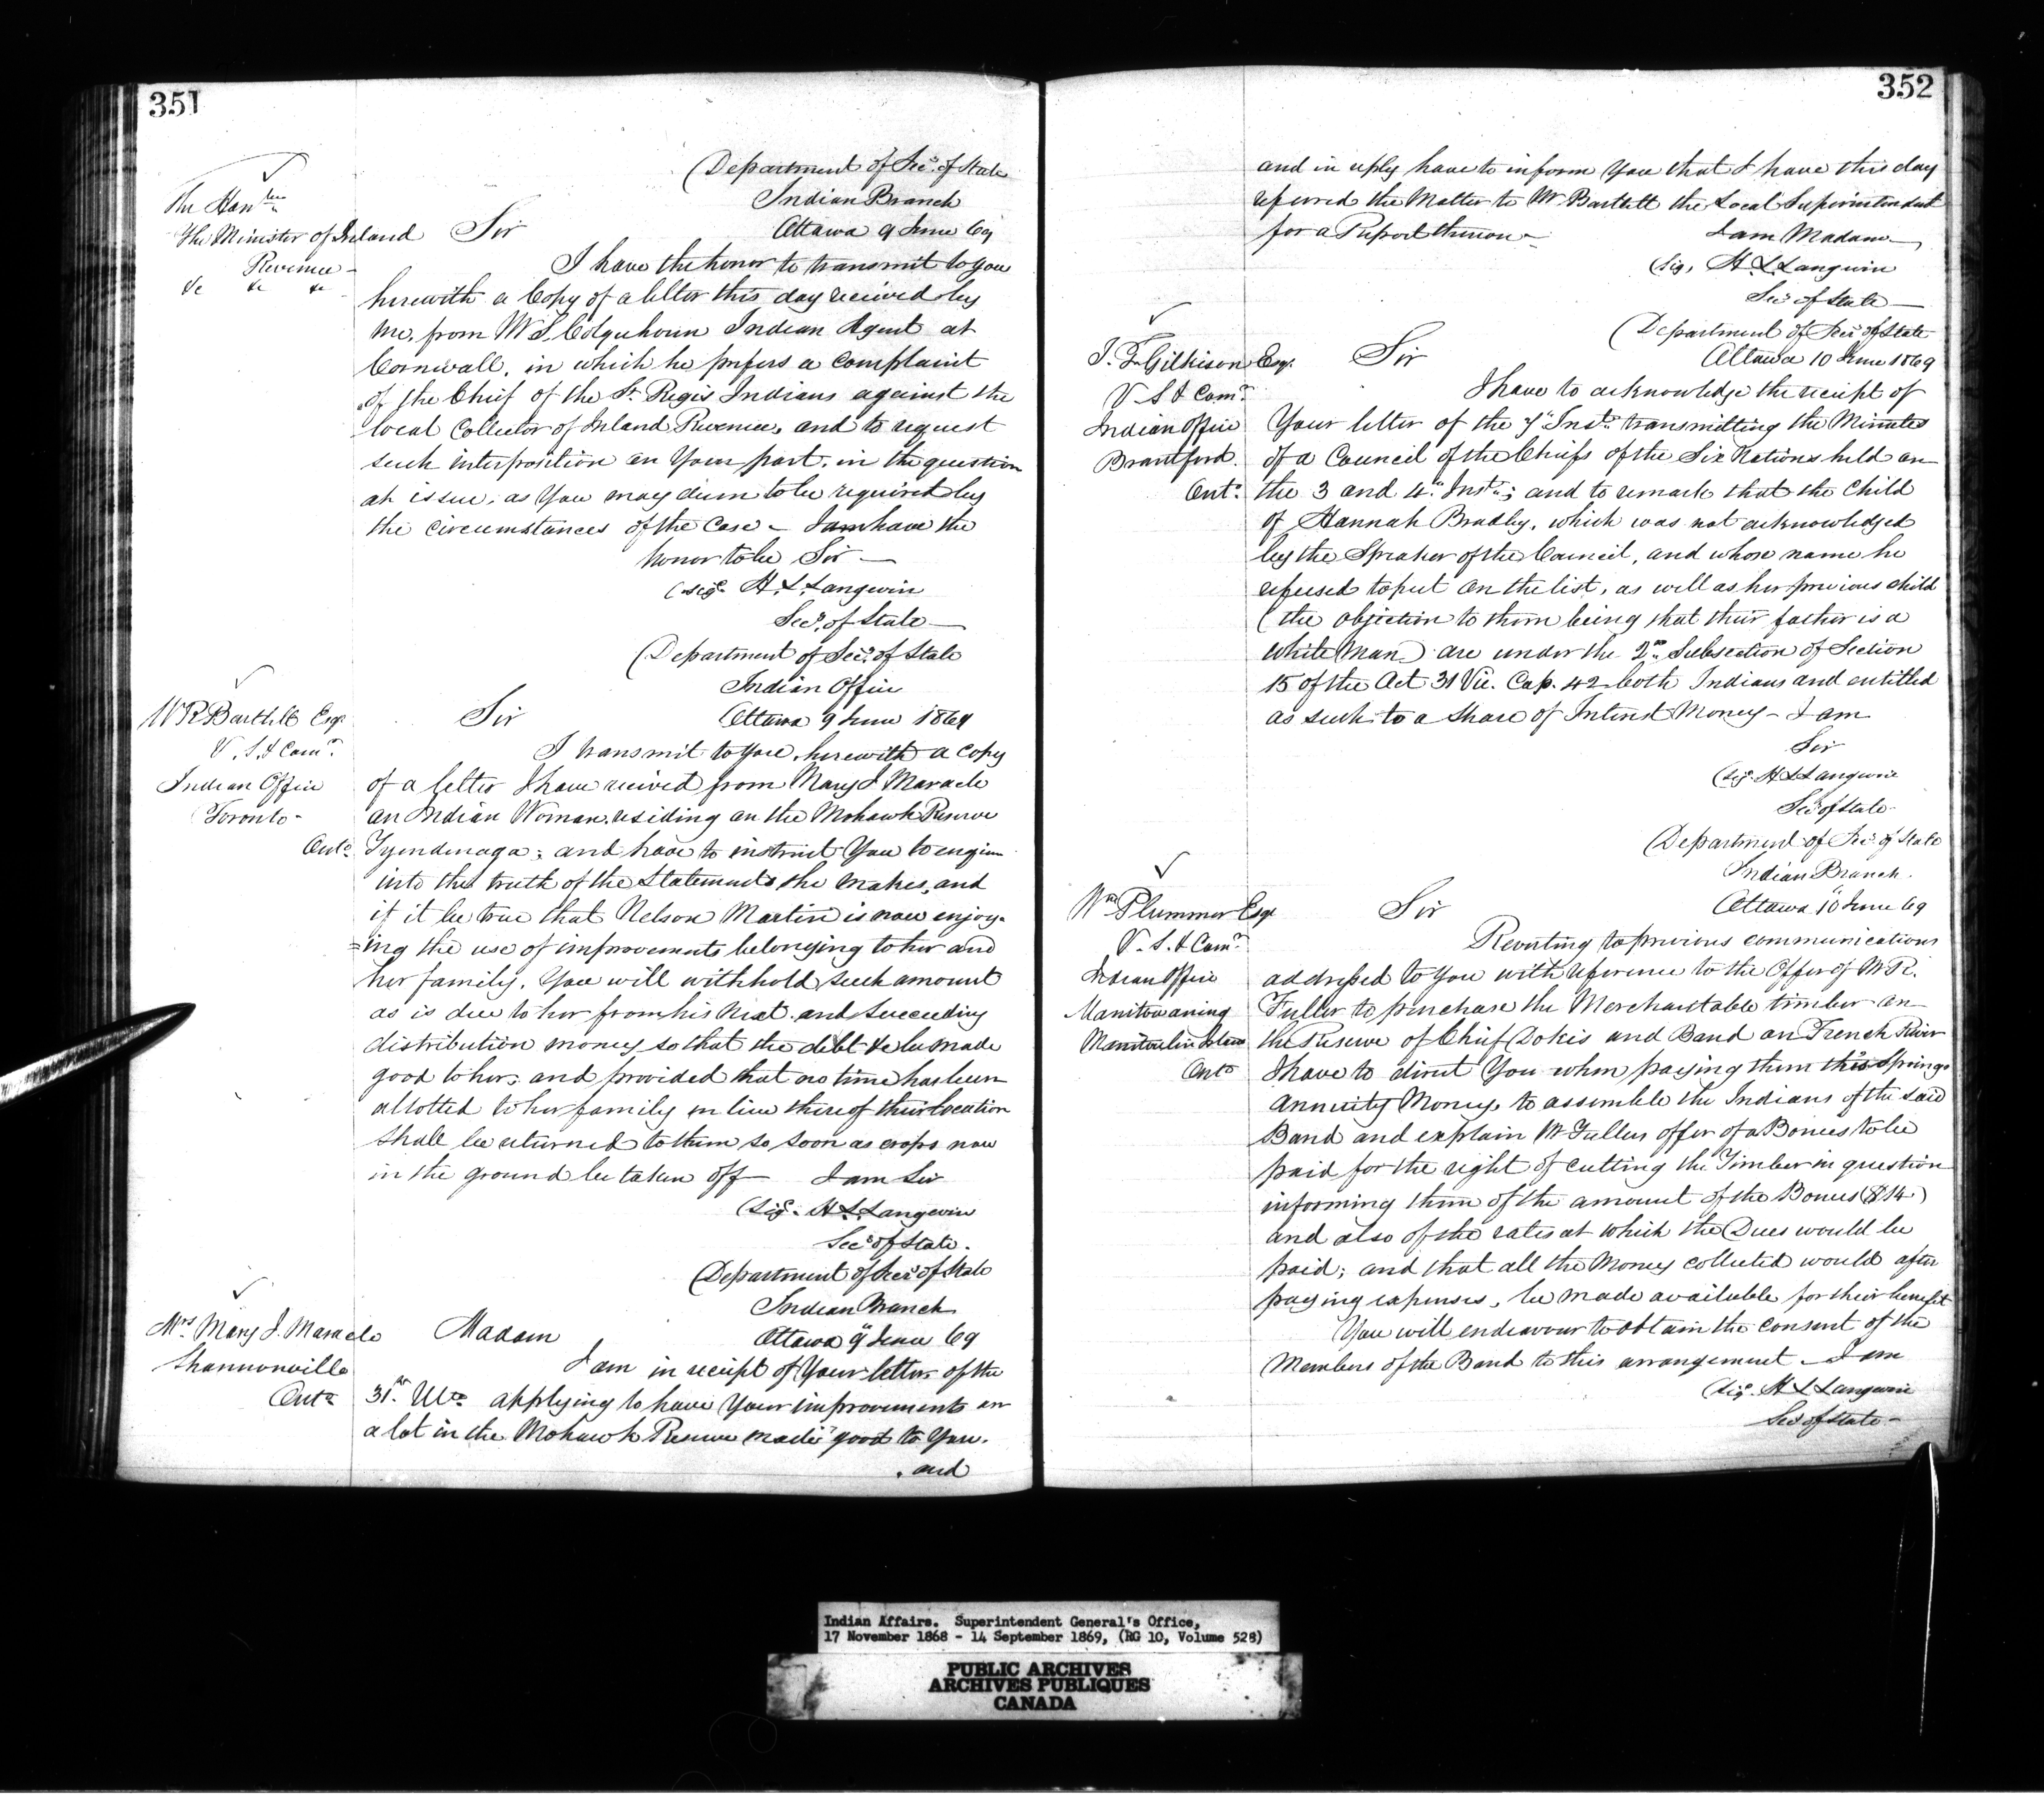 351
Department of Sec. of State
Indian Branch
Ottawa 9 June 69
The Honble
The Minister of Inland
Revenue
&c &c &c
Sir
I have the honor to transmit to you
herewith a Copy of a letter this day received by
me, from W S. Colquhoun Indian Agent at
Cornwall, in which he prefers a complaint
of the Chief of the St. Regis Indians against the
local Collector of Inland Revenue, and to request
such interposition on Your part, in the question
at issue, as You may deem to be required by
the circumstances of the Case - I am have the
honor to be Sir
(Sig. H. L. Langevin
Sec. of State
Department of Sec. of State
Indian Office
Ottawa 9 June 1869
W R Bartlett Esqr.
V. S. & Comr.
Indian Office
Toronto -
Onto.
Sir
I transmit to You, herewith a copy
of a letter I have received from Mary J Maracle
an Indian Woman residing on the Mohawk Reserve
Tyendenaga; and have to instruct You to enquire
into the truth of the Statements she makes, and
if it be true that Nelson Martin is now enjoy-
=ing the use of improvements belonging to her and
her family, You will withhold such amount
as is due to her from his next and succeeding
distribution money so that the debt be made
good to her; and provided that no time has been
allotted to her family in lieu thereof their location
shall be returned to them so soon as crops now
in the ground be taken off - I am Sir
(Sig. H. L. Langevin
Sec. of State.
Department of Sec. of State
Indian Branch
Ottawa 9 June 69
Mrs. Mary J. Maracle
Shannonville
Onto
Madam
I am in receipt of Your letter of the
31st. Ulto applying to have Your improvements on
a lot in the Mohawk Reserve made good to You.
and
352
and in reply have to inform You that I have this day
referred the Matter to Mr Bartlett the Local Superintendent
for a Report thereon -
I am Madam
(Sig. H. L. Langevin
Sec of State
Department of Sec. of State
Ottawa 10 June 1869
J. T. Gilkison Esq.
V S & Comr.
Indian Office
Brantford.
Onto.
Sir
I have to acknowledge the receipt of
Your letter of the 7" Inst. transmitting the Minutes
of a Council of the Chiefs of the Six Nations held on
the 3 and 4th. Inst.; and to remark that the Child
of Hannah Bradley, which was not acknowledged
by the Speaker of the Council, and whose name he
refused to put on the list, as well as her previous child
(the objection to them being that their father is a
white Man) are under the 2nd. Subsection of Section
15 of the Act 31 Vic. Cap. 42 both Indians and entitled
as such to a share of Interest Money - I am
Sir
(Sig. H L Langevin
Sec of State
Department of Sec. of State
Indian Branch.
Ottawa 10" June 69
Wm Plummer Esqr
V. S. & Comr.
Indian Office
Manitowaning
Manitoulin Island
Onto
Sir
Reverting to previous communications
addressed to You with reference to the Offer of Mr R.
Fuller to purchase the Merchantable timber on
the Reserve of Chief Dokis and Band on French River
I have to direct You when paying them this Springs
Annuity Money, to assemble the Indians of the said
Band and explain Mr Fullers offer of a Bonus to be
paid for the right of cutting the Timber in question
informing them of the amount of the Bonus ($14)
and also of the rates at which the Dues would be
paid; and that all the Money collected would after
paying expenses, be made available for their benefit
You will endeavour to obtain the consent of the
Members of the Band to this arrangement - I am
(Sig. H L Langevin
Sec of State -
Indian Affairs. Superintendent General's Office,
17 November 1868 - 14 September 1869, (RG 10, Volume 528)
PUBLIC ARCHIVES
ARCHIVES PUBLIQUES
CANADA